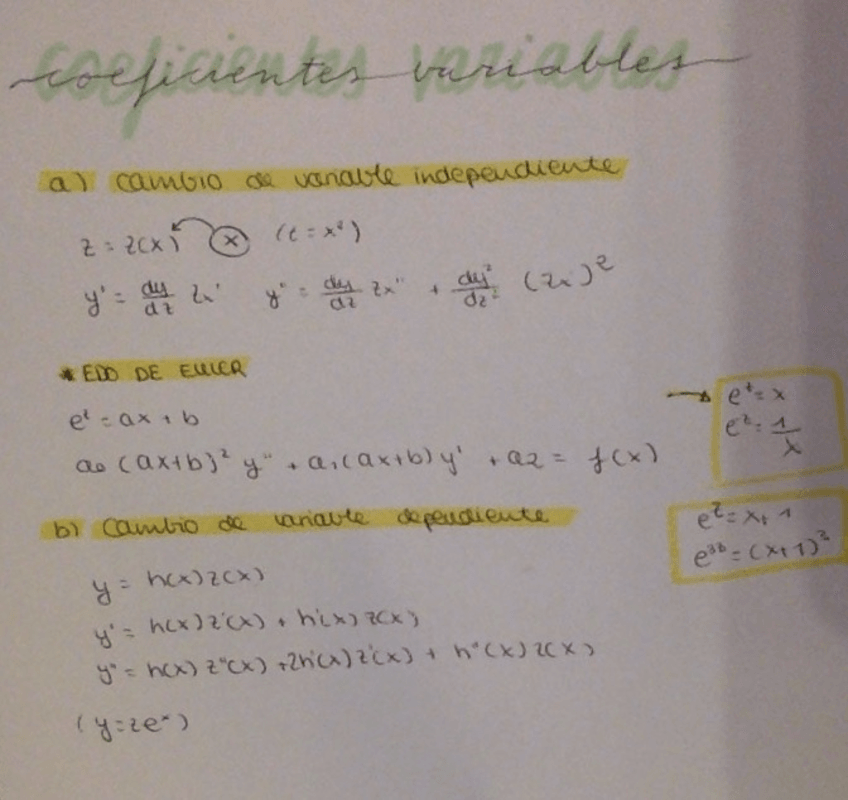 coeficientes variables
a) cambio de variable independiente
z = z(x) x (t = x²)
y' = dy/dz zx' y'' = dy/dz zx'' + dy²/dz² (zx')²
* EDO DE EULER
eᵗ = ax + b
a₀ (ax+b)² y'' + a₁(ax+b) y' + a2 = f(x)
→ eᵗ = x
e² = 1/x
b) Cambio de variable dependiente
eᶻ = x+1
y = h(x) z(x)
y' = h(x) z'(x) + h'(x) z(x)
y'' = h(x) z''(x) + 2h'(x) z'(x) + h''(x) z(x)
(y = zeˣ)